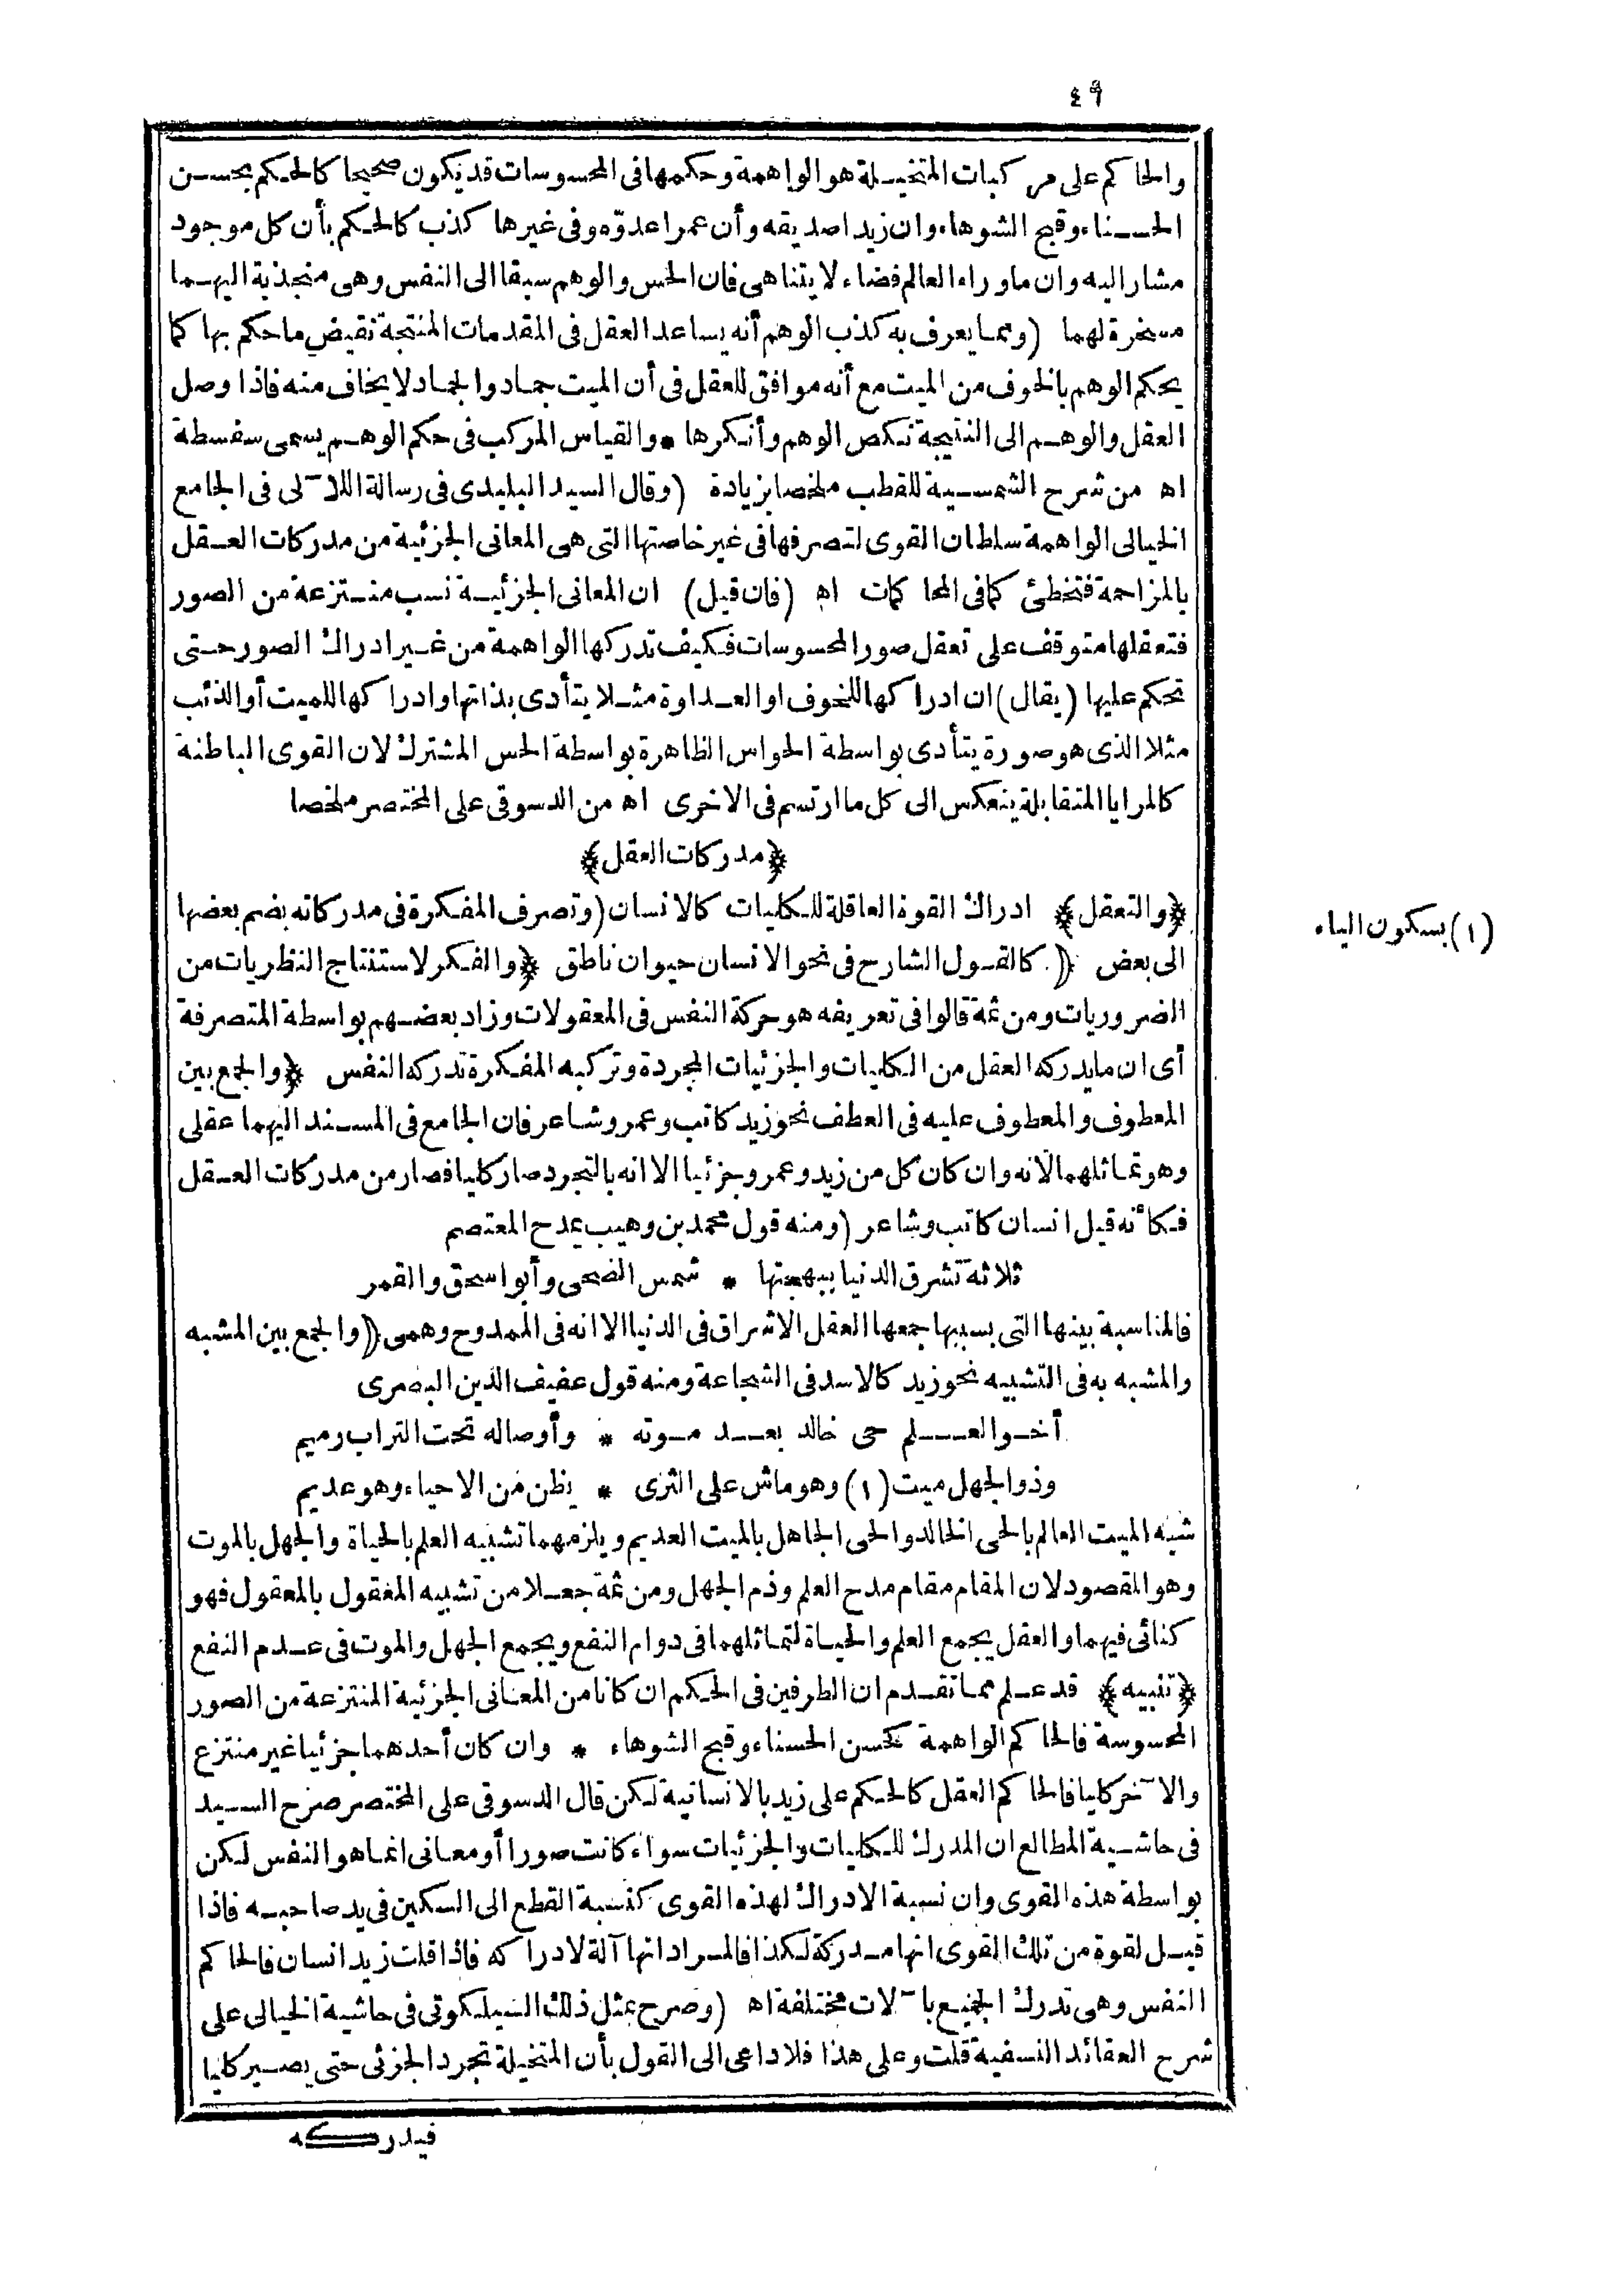 ٤٩
والحاكم على مركبات المتخيلة هو الواهمة وحكمها فى المحسوسات قد يكون صحيحا كالحكم بحسن
الحسناء وقبح الشوهاء وان زيدا صديقه وأن عمرا عدوّه وفى غيرها كذب كالحكم بأن كل موجود
مشار اليه وان ماوراء العالم فضاء لا يتناهى فان الحس والوهم سبقا الى النفس وهى منجذبة اليهما
مسخرة لهما (ومما يعرف به كذب الوهم أنه يساعد العقل فى المقدمات المنتجة نقيض ماحكم بها كما
يحكم الوهم بالخوف من الميت مع أنه موافق للعقل فى أن الميت جماد والجماد لا يخاف منه فاذا وصل
العقل والوهم الى النتيجة نكص الوهم وأنكرها * والقياس المركب فى حكم الوهم يسمى سفسطة
اه من شرح الشمسية للقطب ملخصا بزيادة (وقال السيد البليدى فى رسالة اللآلى فى الجامع
الخيالى الواهمة سلطان القوى لتصرفها فى غير خاصتها التى هى المعانى الجزئية من مدركات العقل
بالمزاحمة فتخطئ كما فى المحاكمات اه (فان قيل) ان المعانى الجزئية نسب منتزعة من الصور
فتعقلها متوقف على تعقل صور المحسوسات فكيف تدركها الواهمة من غير ادراك الصور حتى
تحكم عليها (يقال) ان ادراكها للخوف او العداوة مثلا يتأدى بذاتها وادراكها للميت أو الذئب
مثلا الذى هو صورة يتأدى بواسطة الحواس الظاهرة بواسطة الحس المشترك لان القوى الباطنة
كالمرايا المتقابلة ينعكس الى كل ما ارتسم فى الاخرى اه من الدسوقى على المختصر ملخصا
﴿مدركات العقل﴾
﴿والتعقل﴾ ادراك القوة العاقلة للكليات كالانسان (وتصرف المفكرة فى مدركاته بضم بعضها
الى بعض ﴿ كالقول الشارح فى نحو الانسان حيوان ناطق ﴿والفكر لاستنتاج النظريات من
الضروريات ومن ثمة قالوا فى تعريفه هو حركة النفس فى المعقولات وزاد بعضهم بواسطة المتصرفة
أى ان مايدركه العقل من الكليات والجزئيات المجردة وتركبه المفكرة تدركه النفس ﴿والجمع بين
المعطوف والمعطوف عليه فى العطف نحو زيد كاتب وعمرو شاعر فان الجامع فى المسند اليهما عقلى
وهو تماثلهما لانه وان كان كل من زيد وعمرو جزئيا الا انه بالتجرد صار كليا فصار من مدركات العقل
فكأنه قيل انسان كاتب وشاعر (ومنه قول محمد بن وهيب يمدح المعتصم
ثلاثة تشرق الدنيا ببهجتها * شمس الضحى وأبو اسحق والقمر
فالمناسبة بينها التى بسببها جمعها العقل الاشراق فى الدنيا الا انه فى الممدوح وهمى ﴿والجمع بين المشبه
والمشبه به فى التشبيه نحو زيد كالاسد فى الشجاعة ومنه قول عفيف الدين البصرى
أخو العلم حى خالد بعد موته * وأوصاله تحت التراب رميم
وذو الجهل ميت (١) وهو ماش على الثرى * يظن من الاحياء وهو عديم
شبه الميت العالم بالحى الخالد والحى الجاهل بالميت العديم ويلزمهما تشبيه العلم بالحياة والجهل بالموت
وهو المقصود لان المقام مقام مدح العلم وذم الجهل ومن ثمة جعلا من تشبيه المعقول بالمعقول فهو
كنائى فيهما والعقل يجمع العلم والحياة لتماثلهما فى دوام النفع ويجمع الجهل والموت فى عدم النفع
﴿تنبيه﴾ قد علم مما تقدم ان الطرفين فى الحكم ان كانا من المعانى الجزئية المنتزعة من الصور
المحسوسة فالحاكم الواهمة كحسن الحسناء وقبح الشوهاء * وان كان أحدهما جزئيا غير منتزع
والآخر كليا فالحاكم العقل كالحكم على زيد بالانسانية لكن قال الدسوقى على المختصر صرح السيد
فى حاشية المطالع ان المدرك للكليات والجزئيات سواء كانت صورا أو معانى انما هو النفس لكن
بواسطة هذه القوى وان نسبة الادراك لهذه القوى كنسبة القطع الى السكين فى يد صاحبه فاذا
قيل لقوة من تلك القوى انها مدركة لكذا فالمراد انها آلة لادراكه فاذا قلت زيد انسان فالحاكم
النفس وهى تدرك الجميع بآلات مختلفة اه (وصرح بمثل ذلك السيلكوتى فى حاشية الخيالى على
شرح العقائد النسفية قلت وعلى هذا فلا داعى الى القول بأن المتخيلة تجرد الجزئى حتى يصير كليا
فيدركه
(١) بسكون الياء